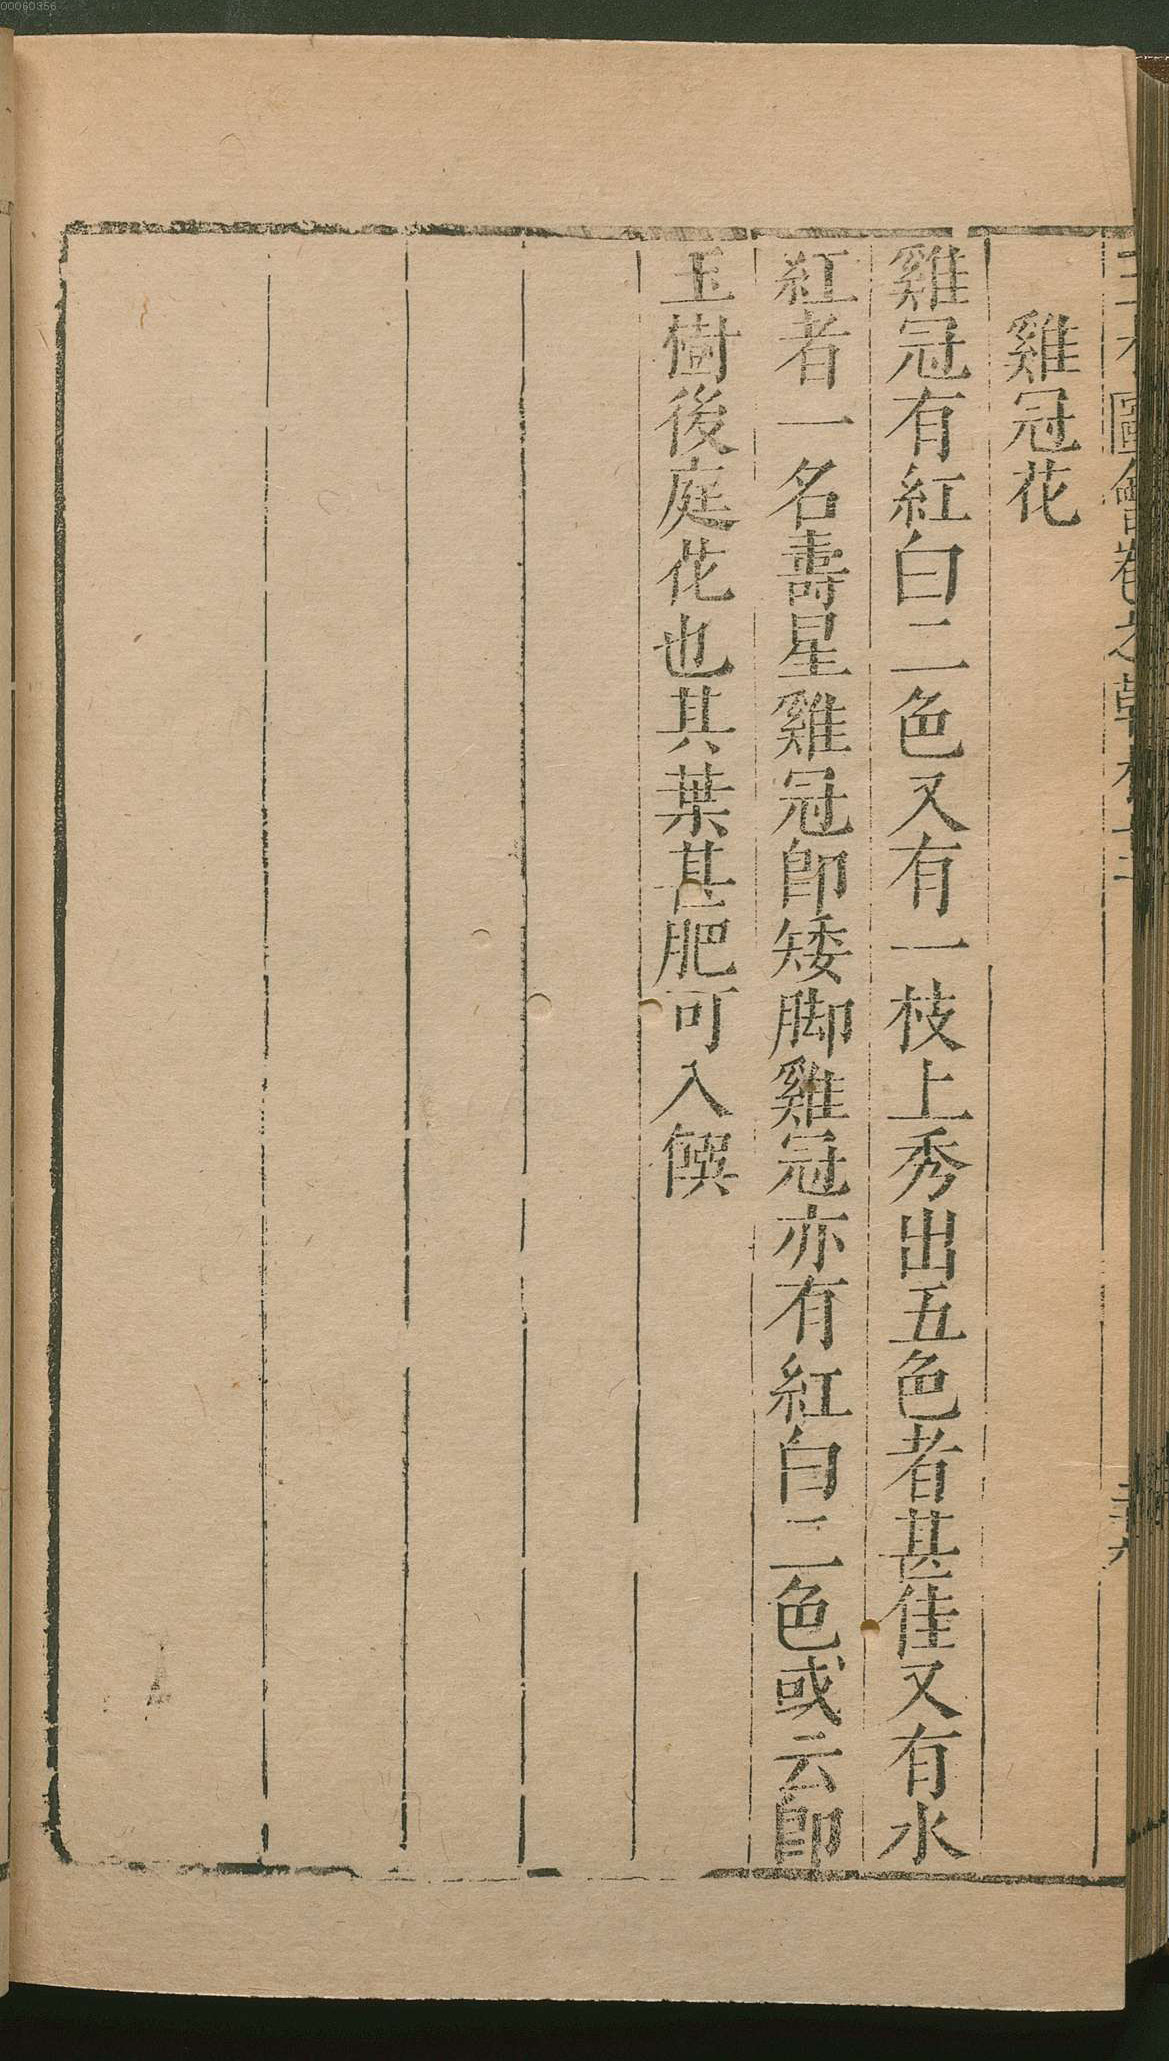 00060356
圖會卷之草木十二
雞冠花
雞冠有紅白二色又有一枝上秀出五色者甚佳又有水
紅者一名壽星雞冠卽矮脚雞冠亦有紅白二色或云卽
玉樹後庭花也其葉甚肥可入饌